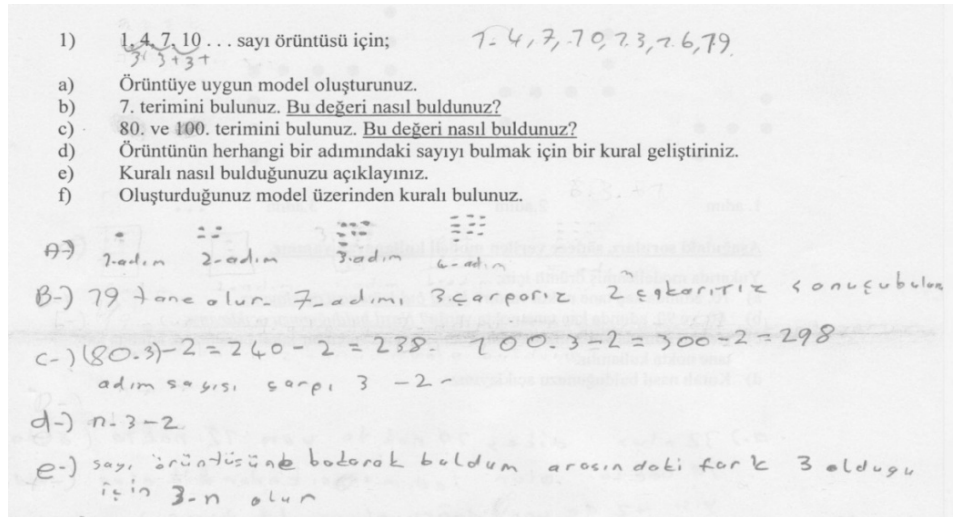 1) 1, 4, 7, 10 . . . sayı örüntüsü için; 1- 4, 7, 10, 13, 16, 19
3+ 3+3+
a) Örüntüye uygun model oluşturunuz.
b) 7. terimini bulunuz. Bu değeri nasıl buldunuz?
c) 80. ve 100. terimini bulunuz. Bu değeri nasıl buldunuz?
d) Örüntünün herhangi bir adımındaki sayıyı bulmak için bir kural geliştiriniz.
e) Kuralı nasıl bulduğunuzu açıklayınız.
f) Oluşturduğunuz model üzerinden kuralı bulunuz.
A-) 1-adım 2-adım 3-adım 4-adım
B-) 19 tane olur 7. adımı 3 çarparız 2 çıkarırız sonucu
c-) (80.3)-2 = 240 - 2 = 238 100.3-2 = 300-2 = 298
adım sayısı çarpı 3 -2-
d-) n.3-2
e-) sayı örüntüsüne bakarak buldum arasındaki fark 3 olduğu
için 3-n olur